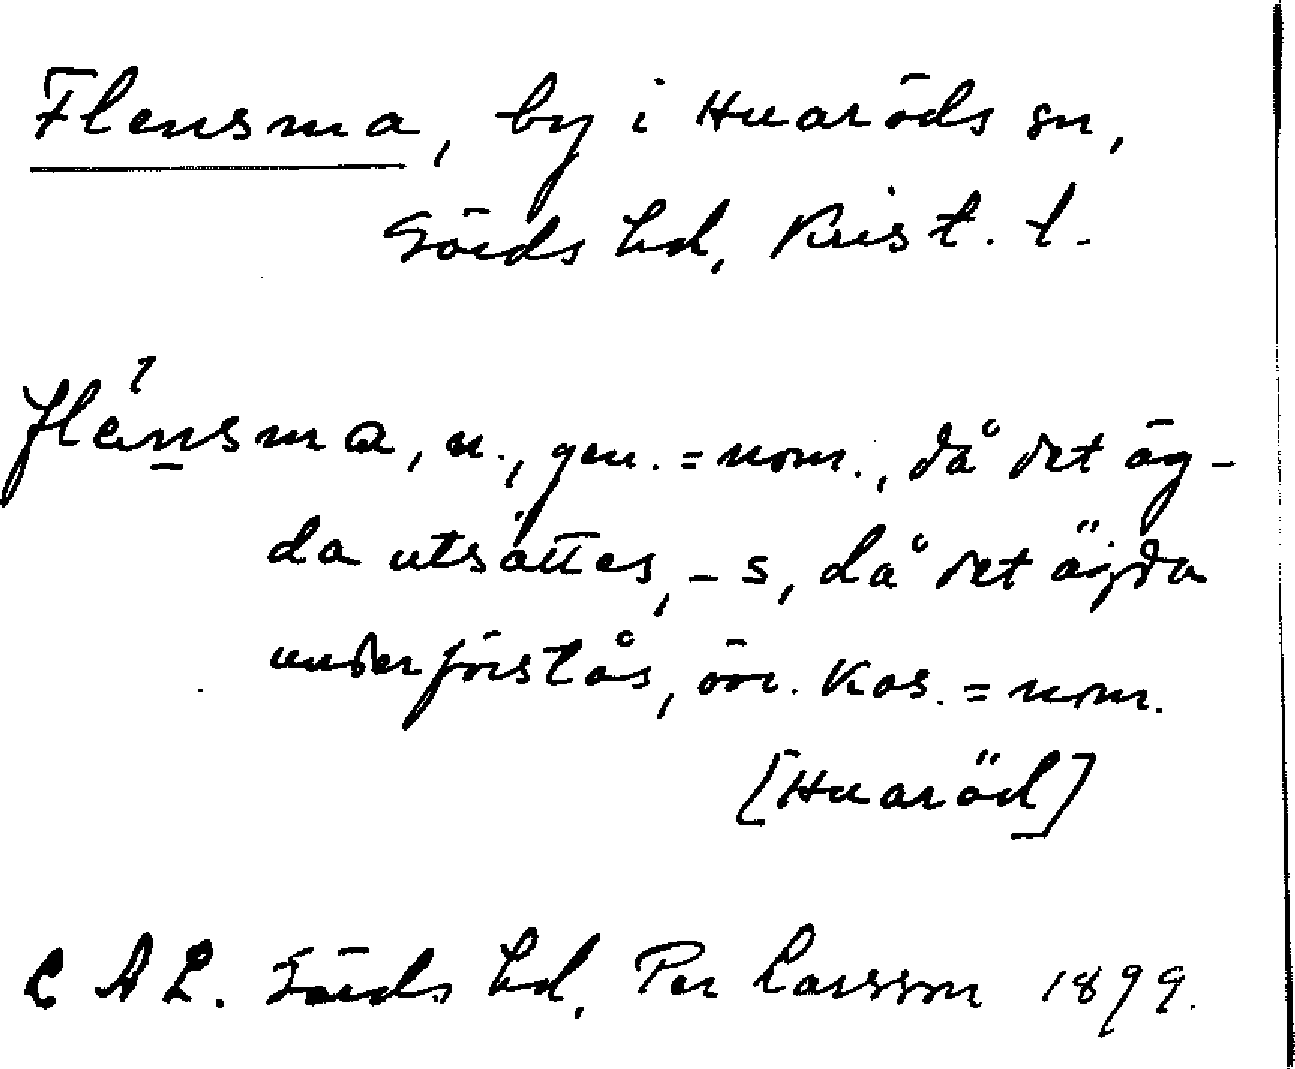 Flensma, by i Huaröds sn,
Gärds hd, Krist. l.
flensma, n., gen. = nom., då det äg-
da utsättes, -s, då det ägda
underförstås, övr. kas. = nom.
[Huaröd]
C A L. Gärds hd, Per Larsson 1899.